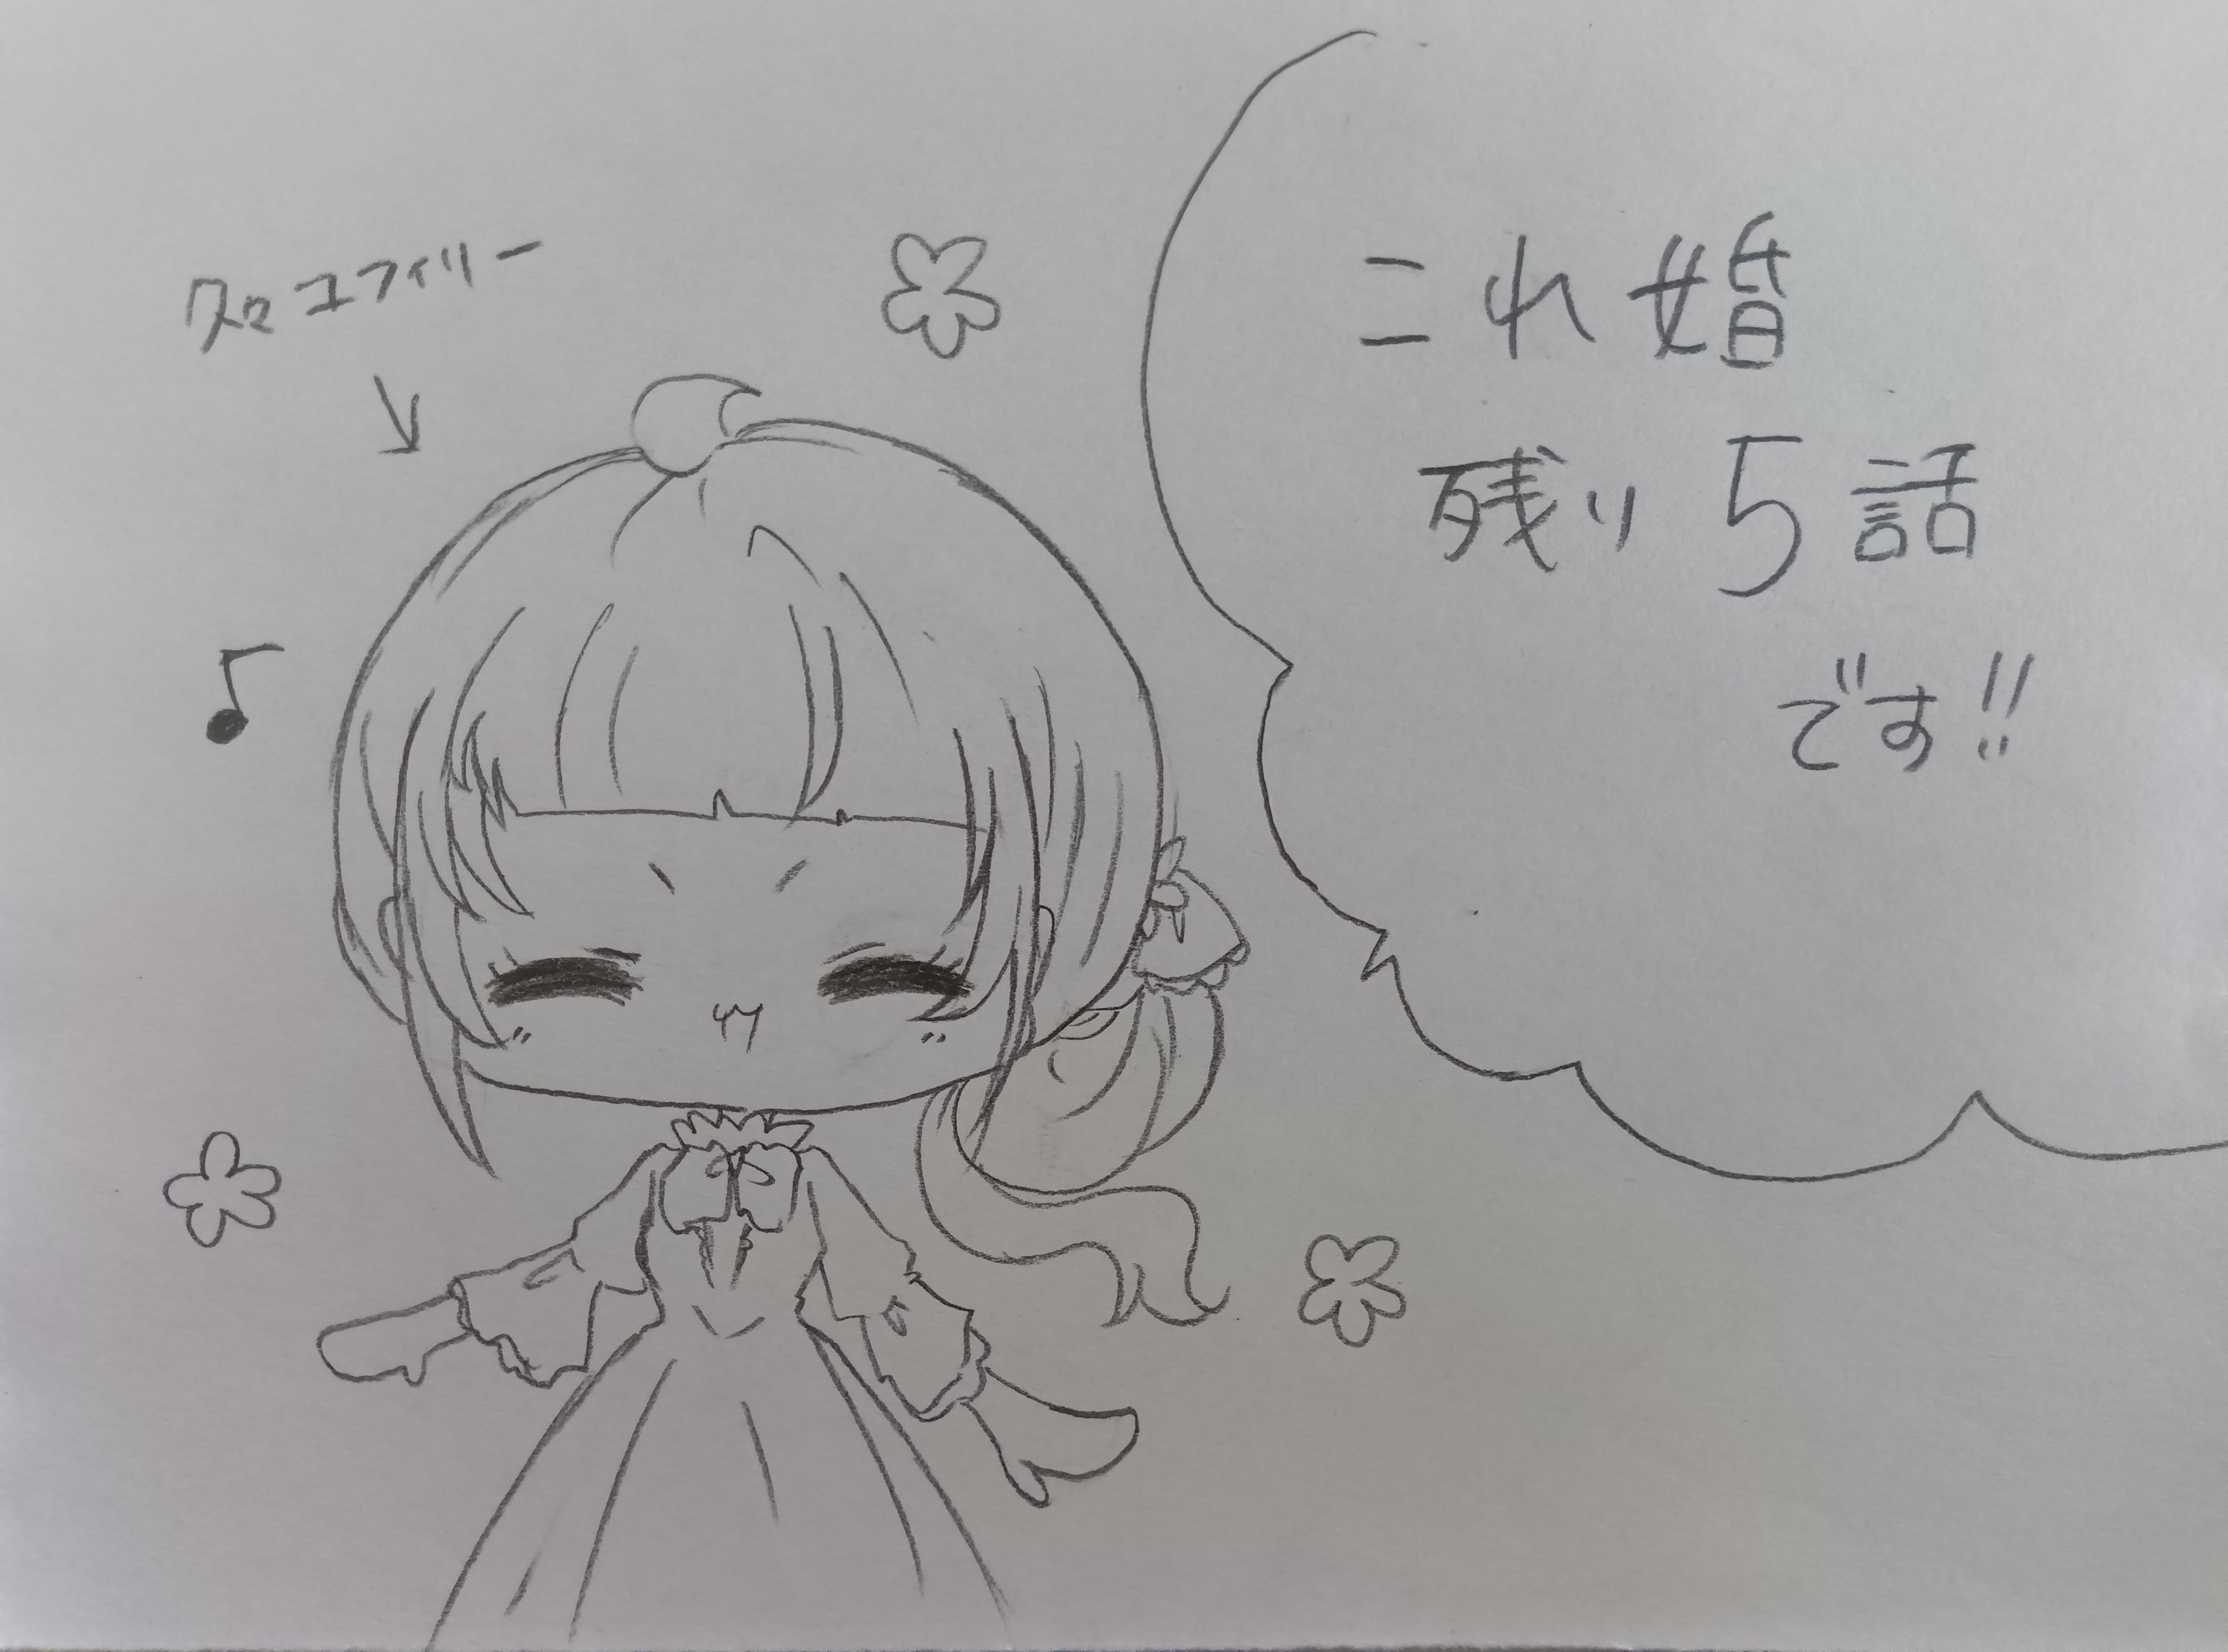 クロユフィリー
これ婚
残り5話
です!!